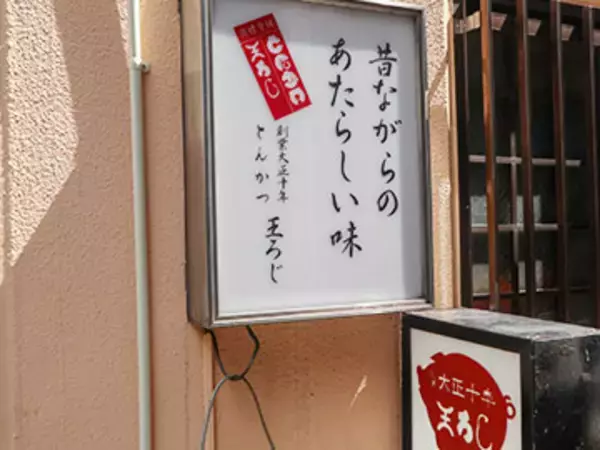 昔ながらの
あたらしい味
創業大正十年
とんかつ 王ろじ
とんかつ
王ろじ
大正十年
王ろじ